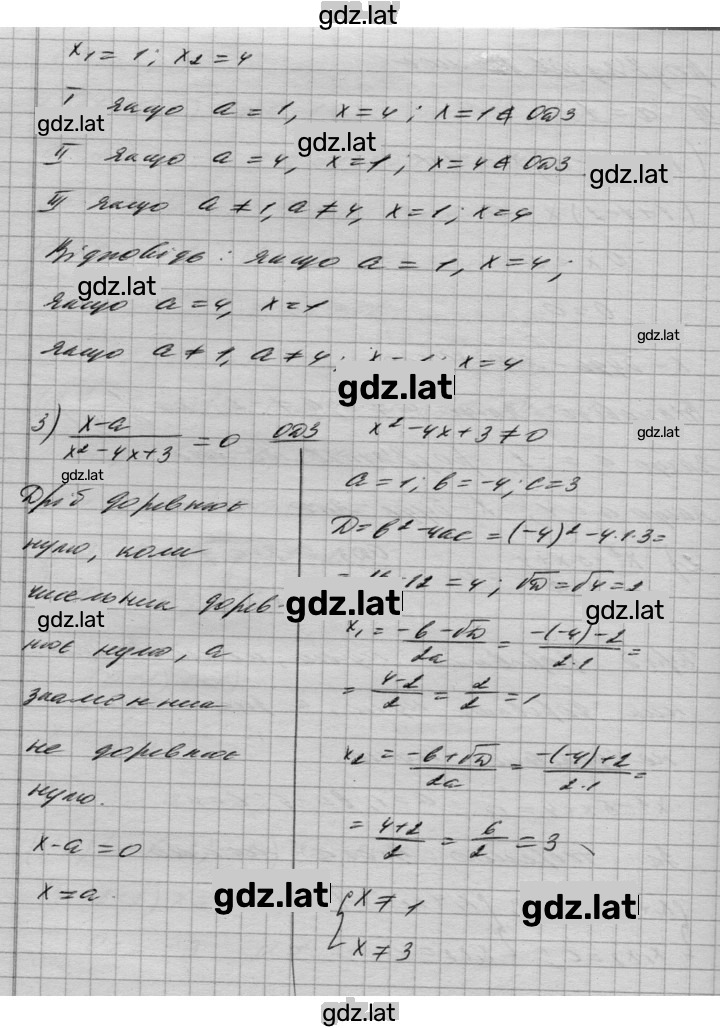 gdz.lat
x₁ = 1; x₂ = 4
I якщо a = 1, x = 4; x = 1 ∉ ОДЗ
gdz.lat
gdz.lat
II якщо a = 4, x = 1; x = 4 ∉ ОДЗ
gdz.lat
III якщо a ≠ 1, a ≠ 4, x = 1; x = 4
Відповідь: якщо a = 1, x = 4;
gdz.lat
якщо a = 4, x = 1
gdz.lat
якщо a ≠ 1, a ≠ 4; x = 1; x = 4
gdz.lat
3) (x-a)/(x² - 4x + 3) = 0 ОДЗ x² - 4x + 3 ≠ 0
gdz.lat
gdz.lat
Дріб дорівнює
нулю, коли
чисельник дорів-
gdz.lat
нює нулю, а
знаменник
не дорівнює
нулю.
x - a = 0
x = a.
a = 1; b = -4; c = 3
D = b² - 4ac = (-4)² - 4·1·3 =
= 16 - 12 = 4; √D = √4 = 2
gdz.lat
gdz.lat
x₁ = (-b - √D)/2a = (-(-4) - 2)/(2·1) =
= (4-2)/2 = 2/2 = 1
x₂ = (-b + √D)/2a = (-(-4) + 2)/(2·1) =
= (4+2)/2 = 6/2 = 3
gdz.lat
gdz.lat
{ x ≠ 1
x ≠ 3
gdz.lat